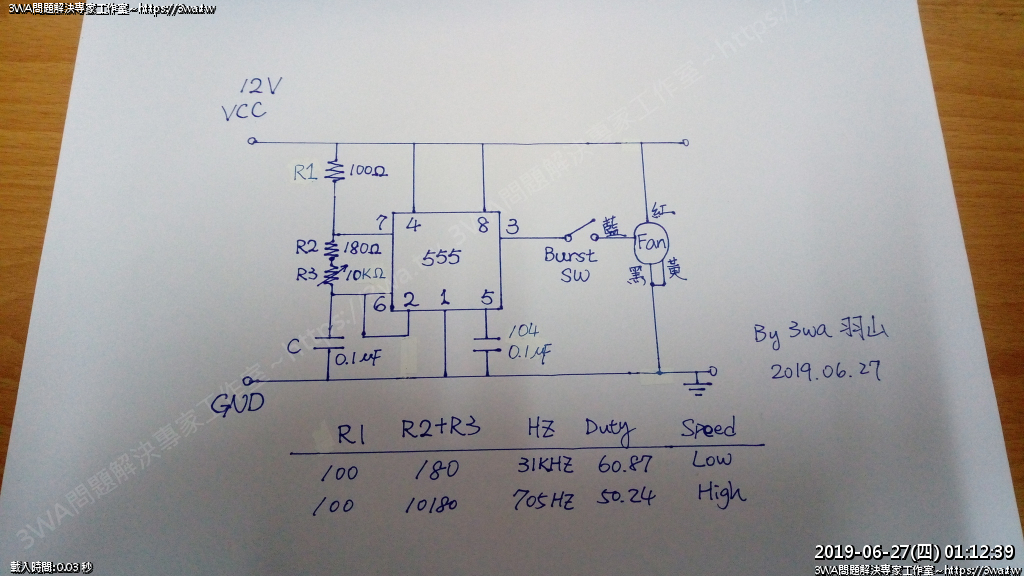 3WA問題解決專家工作室~https://3wa.tw
12V
VCC
R1 100Ω
7 4 8 3
紅
藍
R2 180Ω
555
Fan
Burst
SW
R3 10KΩ
黑 黃
6 2 1 5
104
C 0.1uF
0.1uF
By 3wa 羽山
2019.06.27
GND
R1 R2+R3 HZ Duty Speed
100 180 31KHZ 60.87 Low
100 10180 705HZ 50.24 High
3WA問題解決專家工作室~https://3wa.tw
2019-06-27(四) 01:12:39
載入時間:0.03 秒
3WA問題解決專家工作室~https://3wa.tw